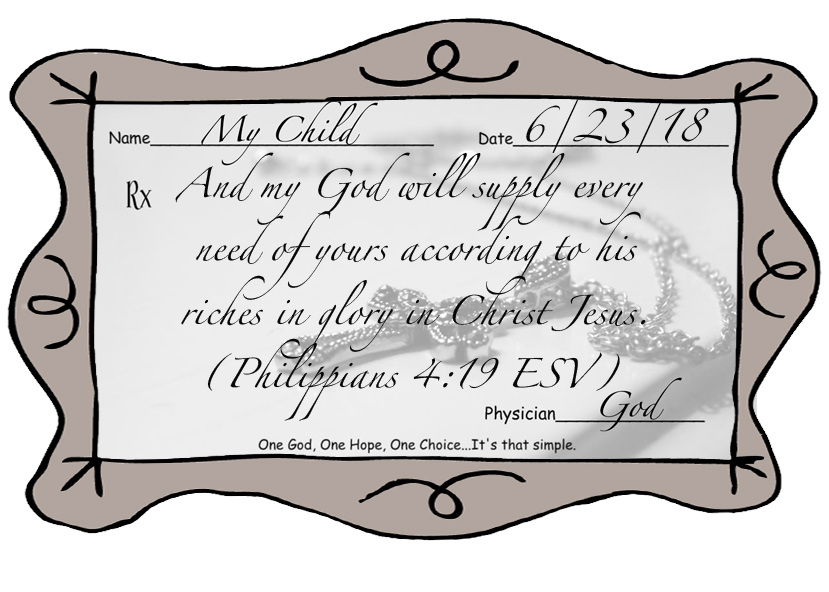 Name My Child Date 6/23/18
Rx And my God will supply every
need of yours according to his
riches in glory in Christ Jesus.
(Philippians 4:19 ESV)
Physician God
One God, One Hope, One Choice...It's that simple.